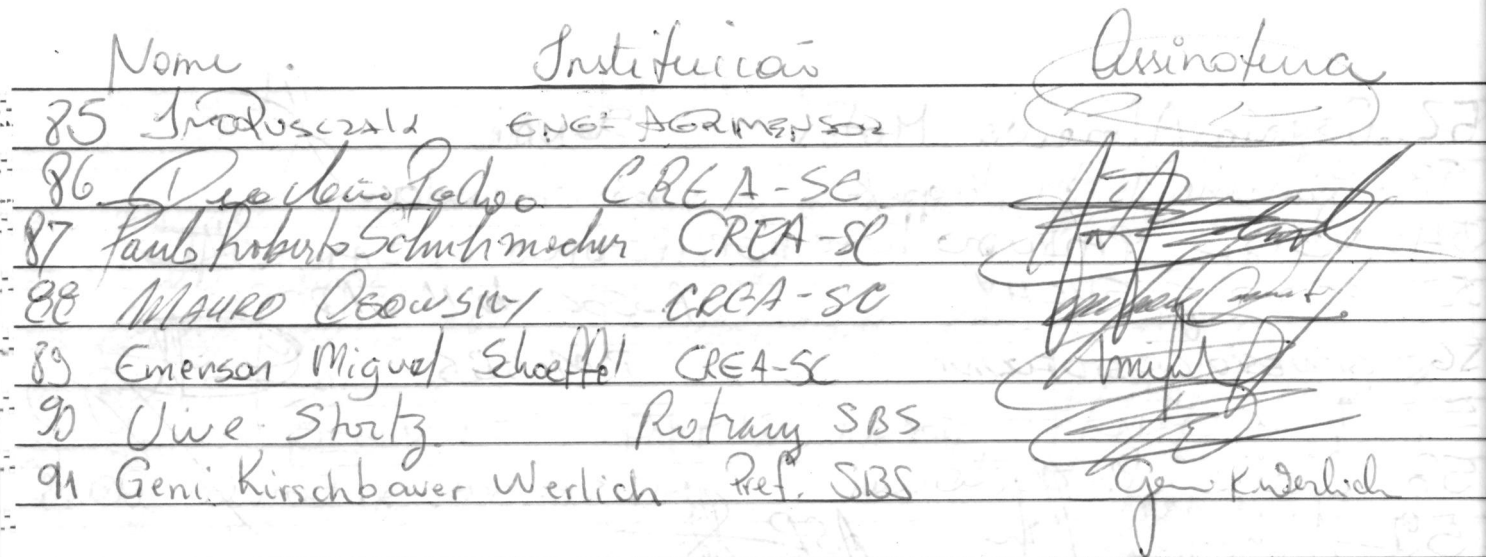 Nome Instituicão Assinatura
85 ENGº AGRIMENSOR
86 CREA-SC
87 Paulo Roberto Schuhmacher CREA-SC
88 MAURO OSOWSKY CREA-SC
89 Emerson Miguel Schoeffel CREA-SC
90 Uwe Stortz Rotrary SBS
91 Geni Kirschbauer Werlich Pref. SBS Geni K Werlich